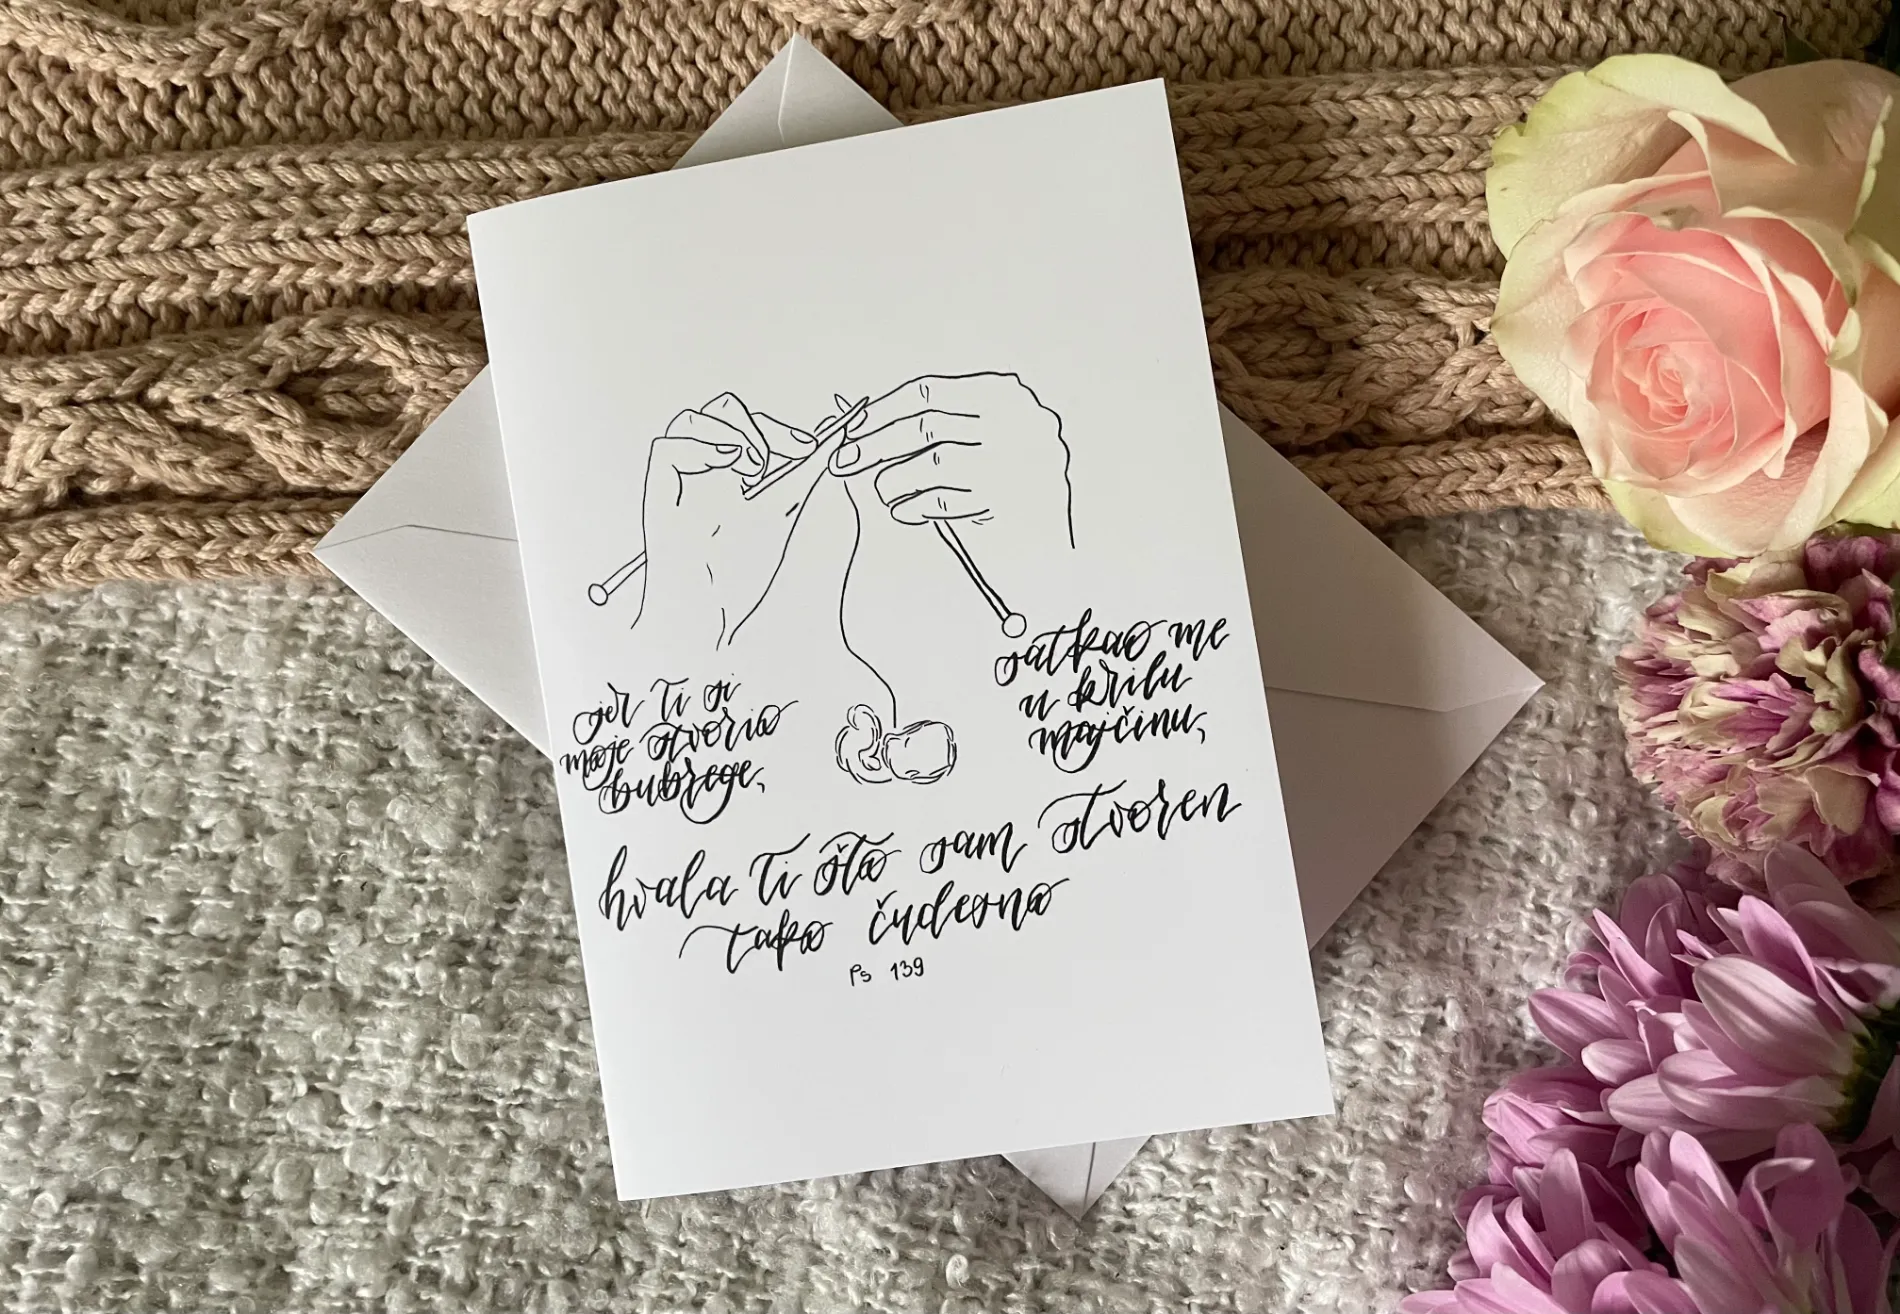 jer Ti si
moje stvorio
bubrege,
satkao me
u krilu
majčinu,
hvala Ti što sam stvoren
tako čudesno
Ps 139